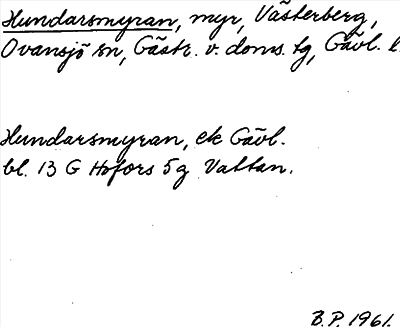 Hundarsmyran, myr, Västerberg,
Ovansjö sn, Gästr. v. doms. tg, Gävl. l.
Hundarsmyran, ek Gävl.
bl. 13 G Hofors 5 g Vattan.
B.P. 1961.